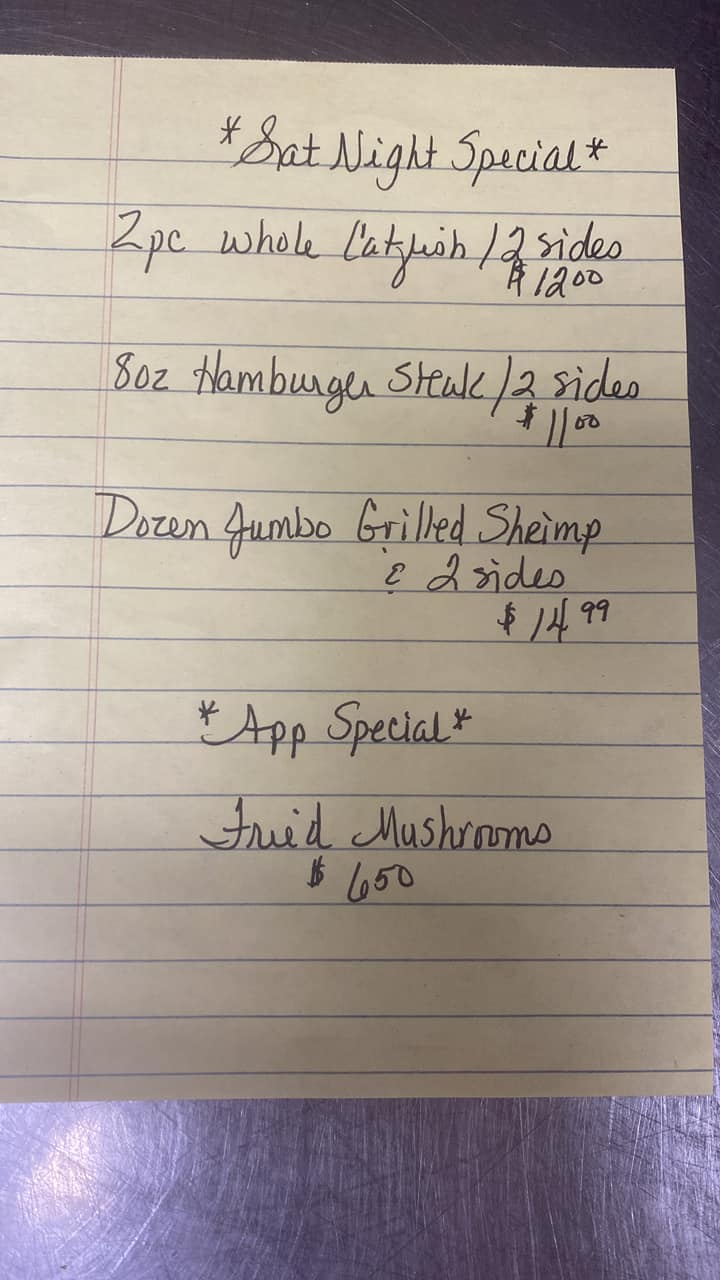 *Sat Night Special*
2pc whole Catfish / 2 sides
$ 12 00
8oz Hamburger Steak / 2 sides
$ 11 00
Dozen Jumbo Grilled Shrimp
& 2 sides
$ 14 99
*App Special*
Fried Mushrooms
$ 6 50